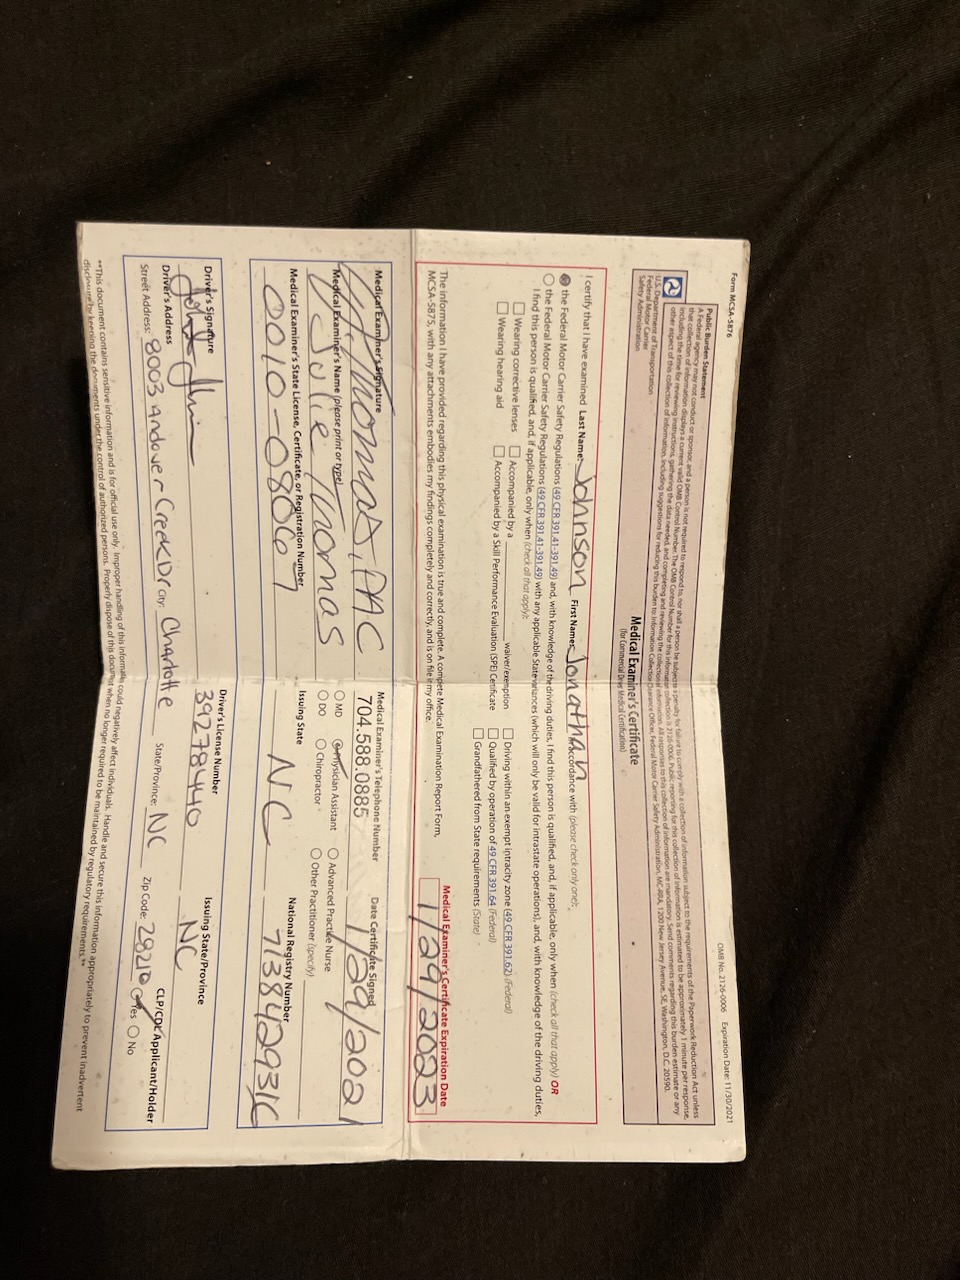 Form MCSA-5876
OMB No. 2126-0006 Expiration Date: 11/30/2021
Public Burden Statement
A Federal agency may not conduct or sponsor, and a person is not required to respond to, nor shall a person be subject to a penalty for failure to comply with a collection of information subject to the requirements of the Paperwork Reduction Act unless
that collection of information displays a current valid OMB Control Number. The OMB Control Number for this information collection is 2126-0006. Public reporting for this collection of information is estimated to be approximately 1 minute per response,
including the time for reviewing instructions, gathering the data needed, and completing and reviewing the collection of information. All responses to this collection of information are mandatory. Send comments regarding this burden estimate or any
other aspect of this collection of information, including suggestions for reducing this burden to: Information Collection Clearance Officer, Federal Motor Carrier Safety Administration, MC-RRA, 1200 New Jersey Avenue, SE, Washington, D.C. 20590.
U.S. Department of Transportation
Federal Motor Carrier
Safety Administration
Medical Examiner's Certificate
(for Commercial Driver Medical Certification)
I certify that I have examined Last Name: Johnson First Name: Jonathan in accordance with (please check only one):
the Federal Motor Carrier Safety Regulations (49 CFR 391.41-391.49) and, with knowledge of the driving duties, I find this person is qualified, and, if applicable, only when (check all that apply) OR
the Federal Motor Carrier Safety Regulations (49 CFR 391.41-391.49) with any applicable State variances (which will only be valid for intrastate operations), and, with knowledge of the driving duties,
I find this person is qualified, and, if applicable, only when (check all that apply):
Wearing corrective lenses Accompanied by a waiver/exemption Driving within an exempt intracity zone (49 CFR 391.62) (Federal)
Wearing hearing aid Accompanied by a Skill Performance Evaluation (SPE) Certificate Qualified by operation of 49 CFR 391.64 (Federal)
Grandfathered from State requirements (State)
The information I have provided regarding this physical examination is true and complete. A complete Medical Examination Report Form,
MCSA-5875, with any attachments embodies my findings completely and correctly, and is on file in my office.
Medical Examiner's Certificate Expiration Date
1/29/2023
Medical Examiner's Signature Medical Examiner's Telephone Number Date Certificate Signed
Thomas, PAC 704.588.0885 1/29/2021
Medical Examiner's Name (please print or type)
Julie Thomas
MD Physician Assistant Advanced Practice Nurse
DO Chiropractor Other Practitioner (specify)
Medical Examiner's State License, Certificate, or Registration Number Issuing State National Registry Number
0010-08067 NC
Driver's Signature Driver's License Number Issuing State/Province
39278440 NC
Driver's Address CLP/CDL Applicant/Holder
Street Address: 8003 Andover Creek Dr City: Charlotte State/Province: NC Zip Code: 28210 Yes No
**This document contains sensitive information and is for official use only. Improper handling of this information could negatively affect individuals. Handle and secure this information appropriately to prevent inadvertent
disclosure by keeping the documents under the control of authorized persons. Properly dispose of this document when no longer required to be maintained by regulatory requirements.**